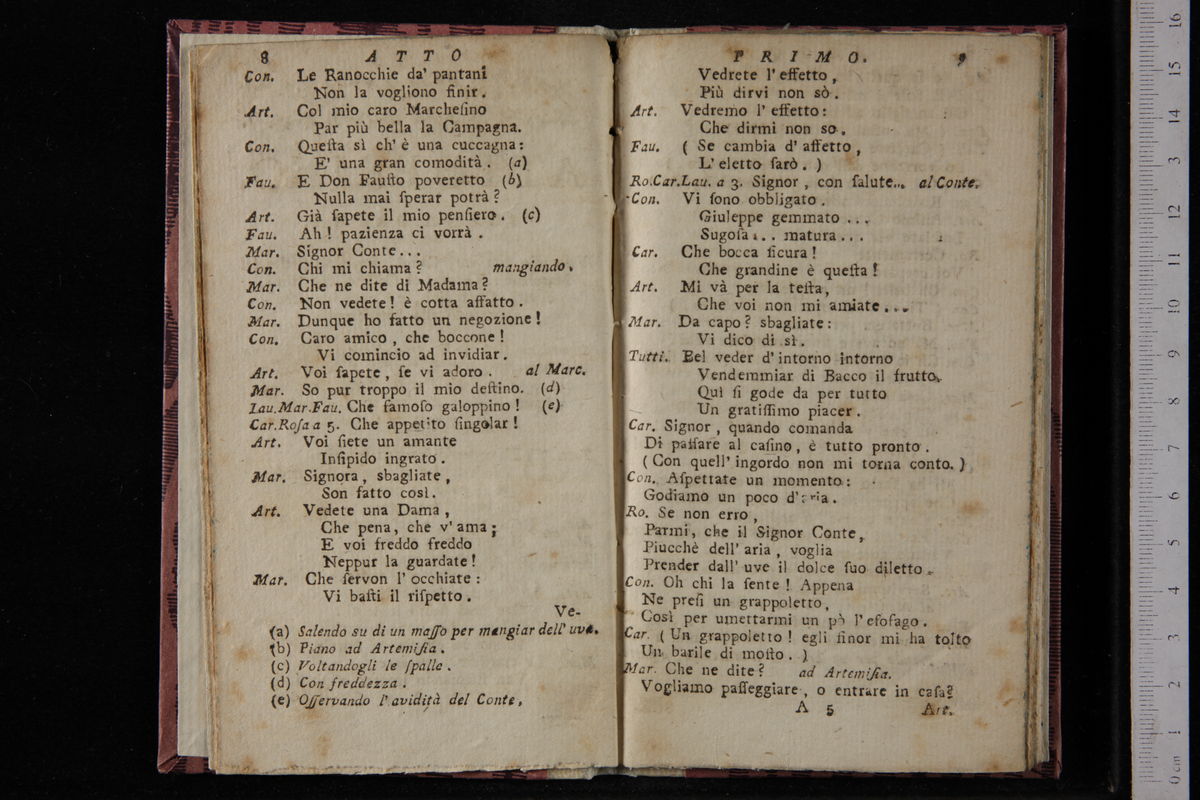 8 ATTO
Con. Le Ranocchie da' pantani
Non la vogliono finir.
Art. Col mio caro Marcheſino
Par più bella la Campagna.
Con. Queſta sì ch' è una cuccagna:
E' una gran comodità. (a)
Fau. E Don Fauſto poveretto (b)
Nulla mai ſperar potrà?
Art. Già ſapete il mio penſiero. (c)
Fau. Ah! pazienza ci vorrà.
Mar. Signor Conte...
Con. Chi mi chiama? mangiando.
Mar. Che ne dite di Madama?
Con. Non vedete! è cotta affatto.
Mar. Dunque ho fatto un negozione!
Con. Caro amico, che boccone!
Vi comincio ad invidiar.
Art. Voi ſapete, ſe vi adoro. al Marc.
Mar. So pur troppo il mio deſtino. (d)
Lau.Mar.Fau. Che famoſo galoppino! (e)
Car.Roſa a 5. Che appetito ſingolar!
Art. Voi ſiete un amante
Inſipido ingrato.
Mar. Signora, sbagliate,
Son fatto così.
Art. Vedete una Dama,
Che pena, che v' ama;
E voi freddo freddo
Neppur la guardate!
Mar. Che ſervon l' occhiate:
Vi baſti il riſpetto.
Ve-
(a) Salendo su di un maſſo per mangiar dell' uva.
(b) Piano ad Artemiſia.
(c) Voltandogli le ſpalle.
(d) Con freddezza.
(e) Oſſervando l' avidità del Conte,
PRIMO. 9
Vedrete l' effetto,
Più dirvi non sò.
Art. Vedremo l' effetto:
Che dirmi non so.
Fau. ( Se cambia d' affetto,
L' eletto ſarò. )
Ro.Car.Lau. a 3. Signor, con ſalute... al Conte.
Con. Vi ſono obbligato.
Giuleppe gemmato...
Sugoſa... matura...
Car. Che bocca ſicura!
Che grandine è queſta!
Art. Mi và per la teſta,
Che voi non mi amiate...
Mar. Da capo? sbagliate:
Vi dico di sì.
Tutti. Bel veder d' intorno intorno
Vendemmiar di Bacco il frutto,
Quì ſi gode da per tutto
Un gratiſſimo piacer.
Car. Signor, quando comanda
Di paſſare al caſino, è tutto pronto.
( Con quell' ingordo non mi torna conto. )
Con. Aſpettate un momento:
Godiamo un poco d' aria.
Ro. Se non erro,
Parmi, che il Signor Conte,
Piucchè dell' aria, voglia
Prender dall' uve il dolce ſuo diletto.
Con. Oh chi la ſente! Appena
Ne preſi un grappoletto,
Così per umettarmi un pò l' eſofago.
Car. ( Un grappoletto! egli ſinor mi ha tolto
Un barile di moſto. )
Mar. Che ne dite? ad Artemiſia.
Vogliamo paſſeggiare, o entrare in caſa?
A 5 Art.
0 cm 1 2 3 4 5 6 7 8 9 10 11 12 13 14 15 16